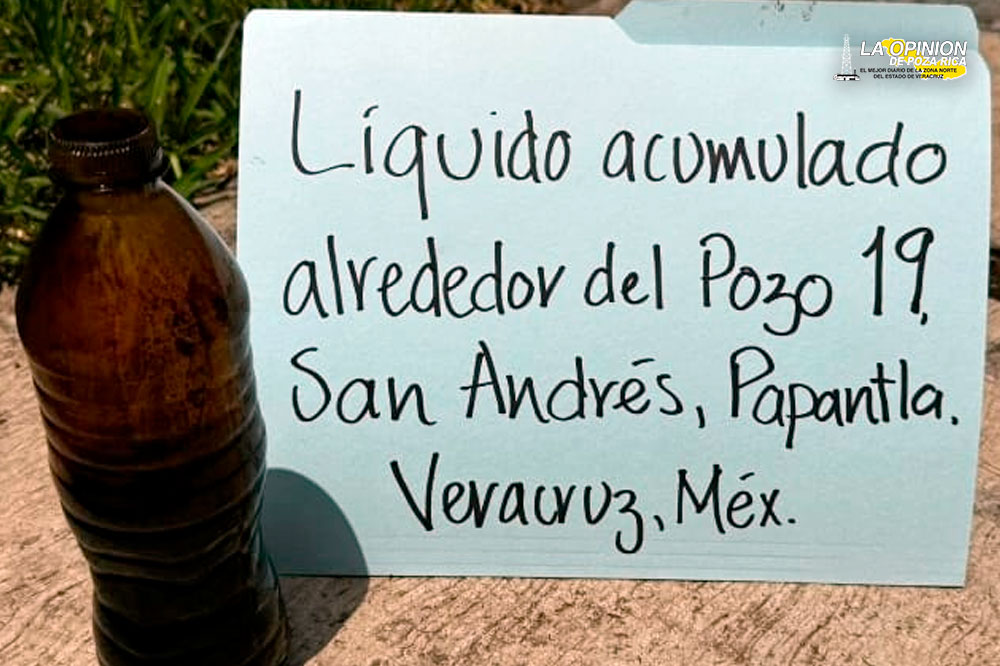 LA OPINION
DE POZA RICA
EL MEJOR DIARIO DE LA ZONA NORTE
DEL ESTADO DE VERACRUZ
Líquido acumulado
alrededor del Pozo 19,
San Andrés, Papantla.
Veracruz, Méx.